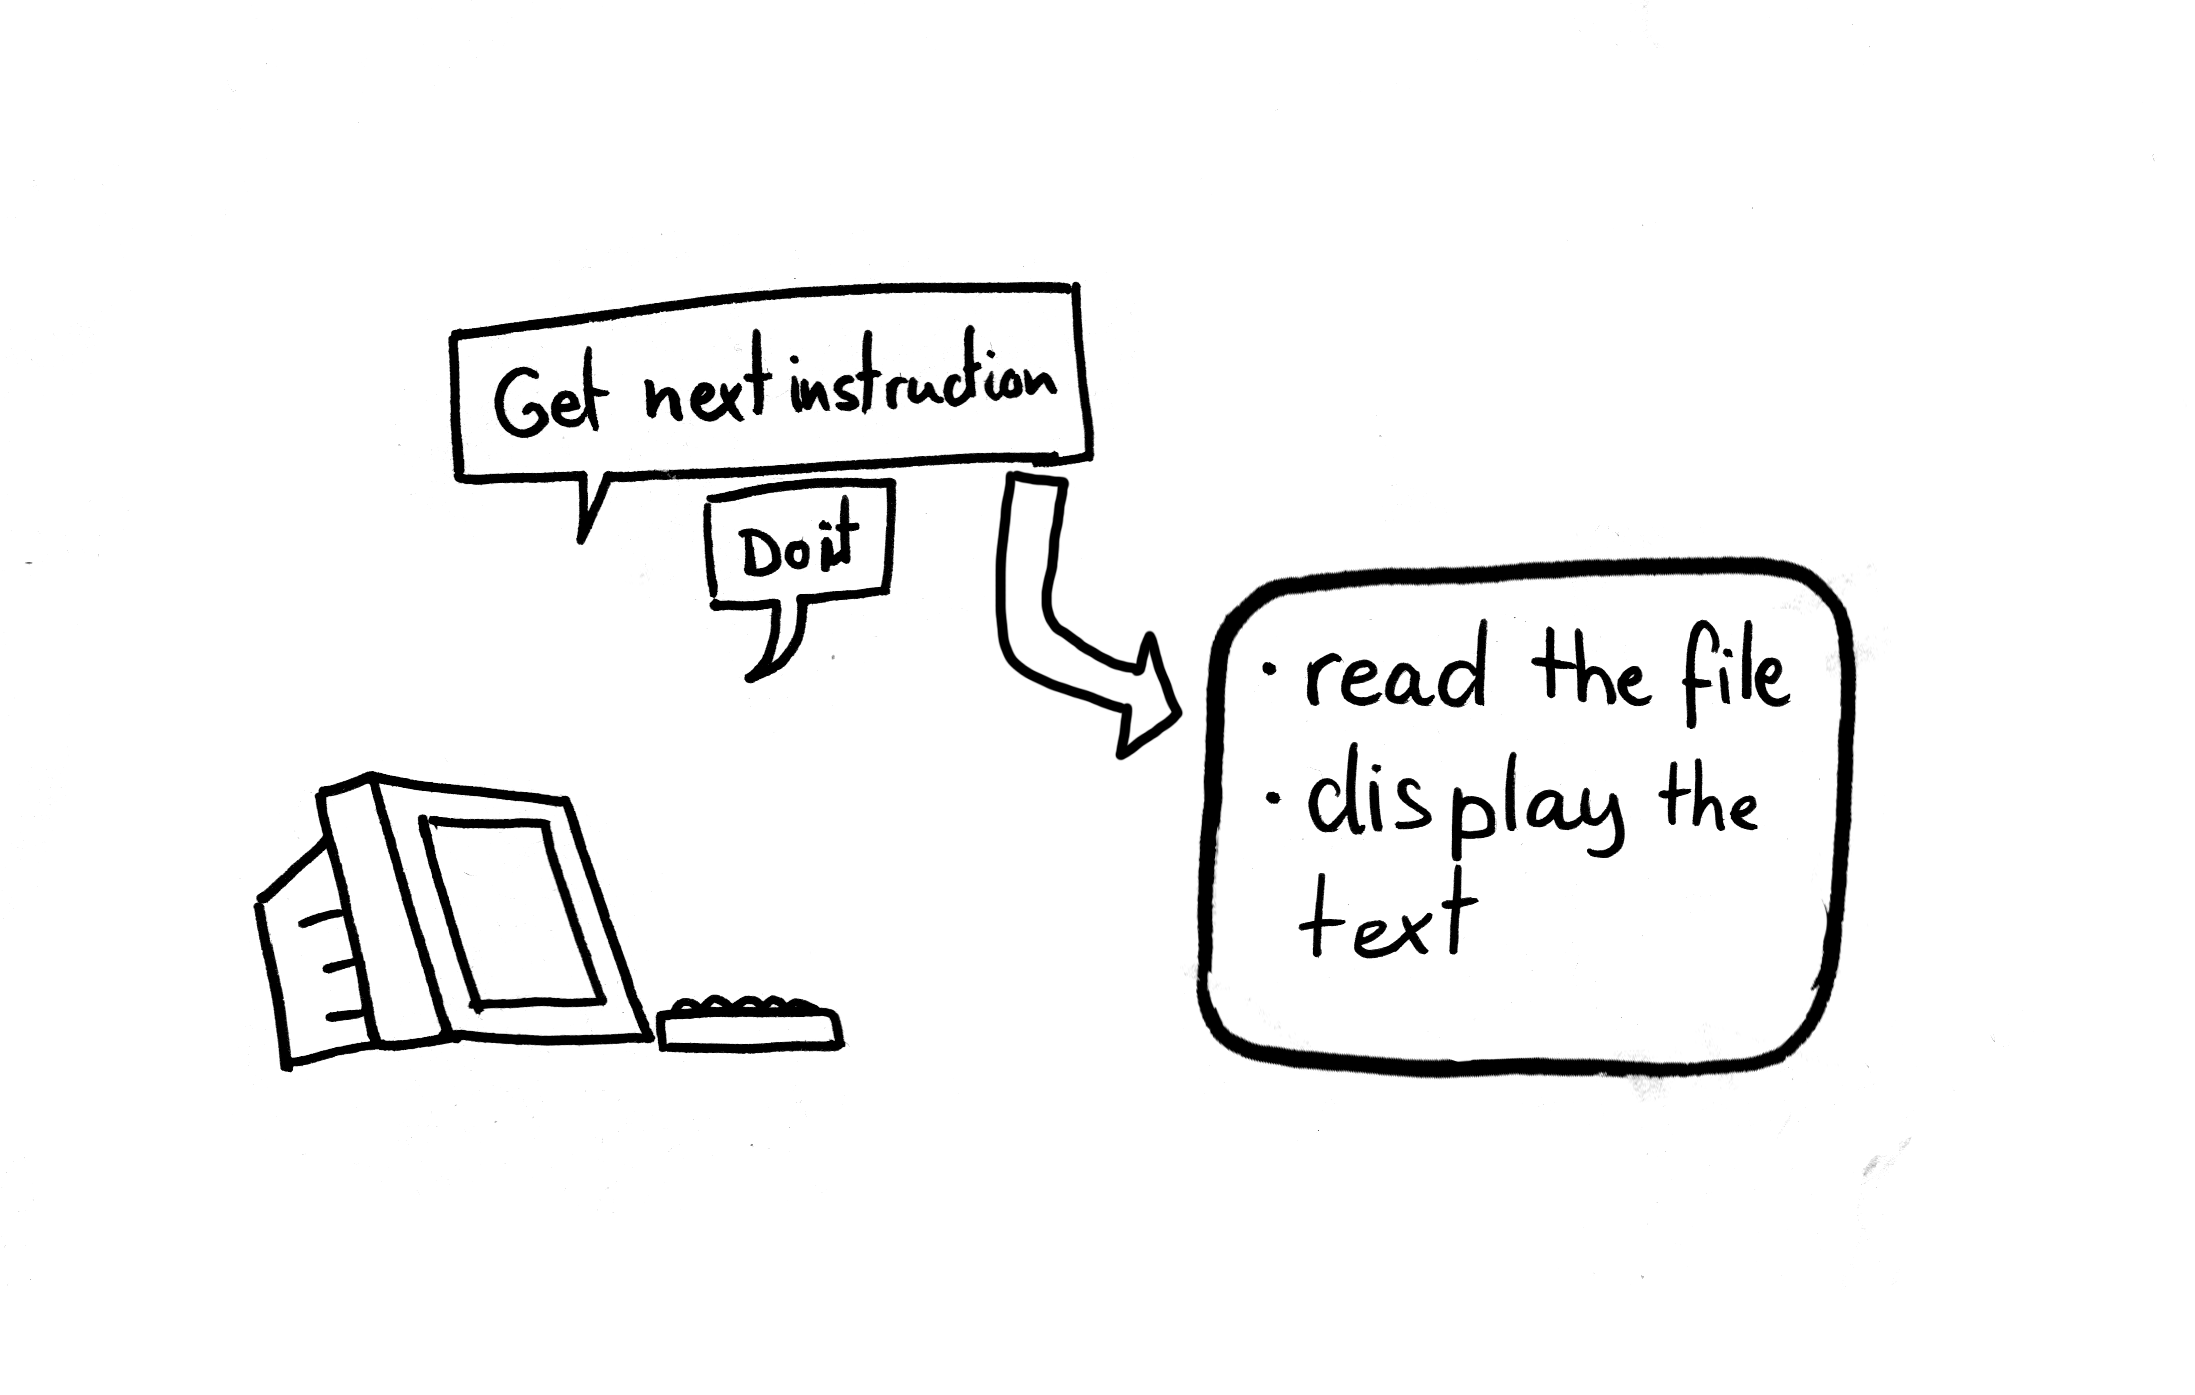 Get next instruction
Do it
• read the file
• display the
text